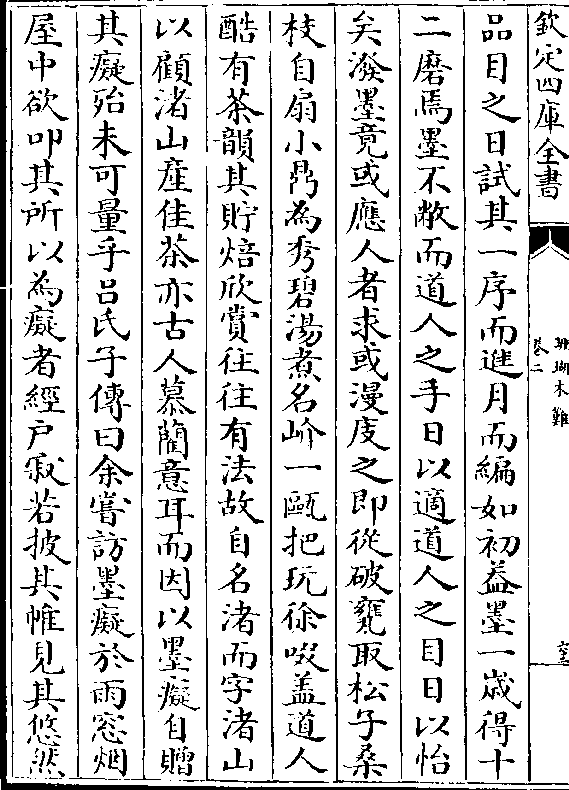 欽定四庫全書
珊瑚木難
卷二
品目之日試其一序而進月而編如初益墨一歲得十
二磨焉墨不敝而道人之手日以適道人之目日以怡
矣潑墨竟或應人者求或漫庋之即從破甕取松子桑
枝自扇小鼎為秀碧湯煮名岕一甌把玩徐啜盖道人
酷有茶韻其貯焙欣賞往往有法故自名渚而字渚山
以顧渚山産佳茶亦古人慕藺意耳而因以墨癡自贈
其癡殆未可量乎吕氏子傳曰余嘗訪墨癡於雨窓烟
屋中欲叩其所以為癡者經户寂若披其帷見其悠然